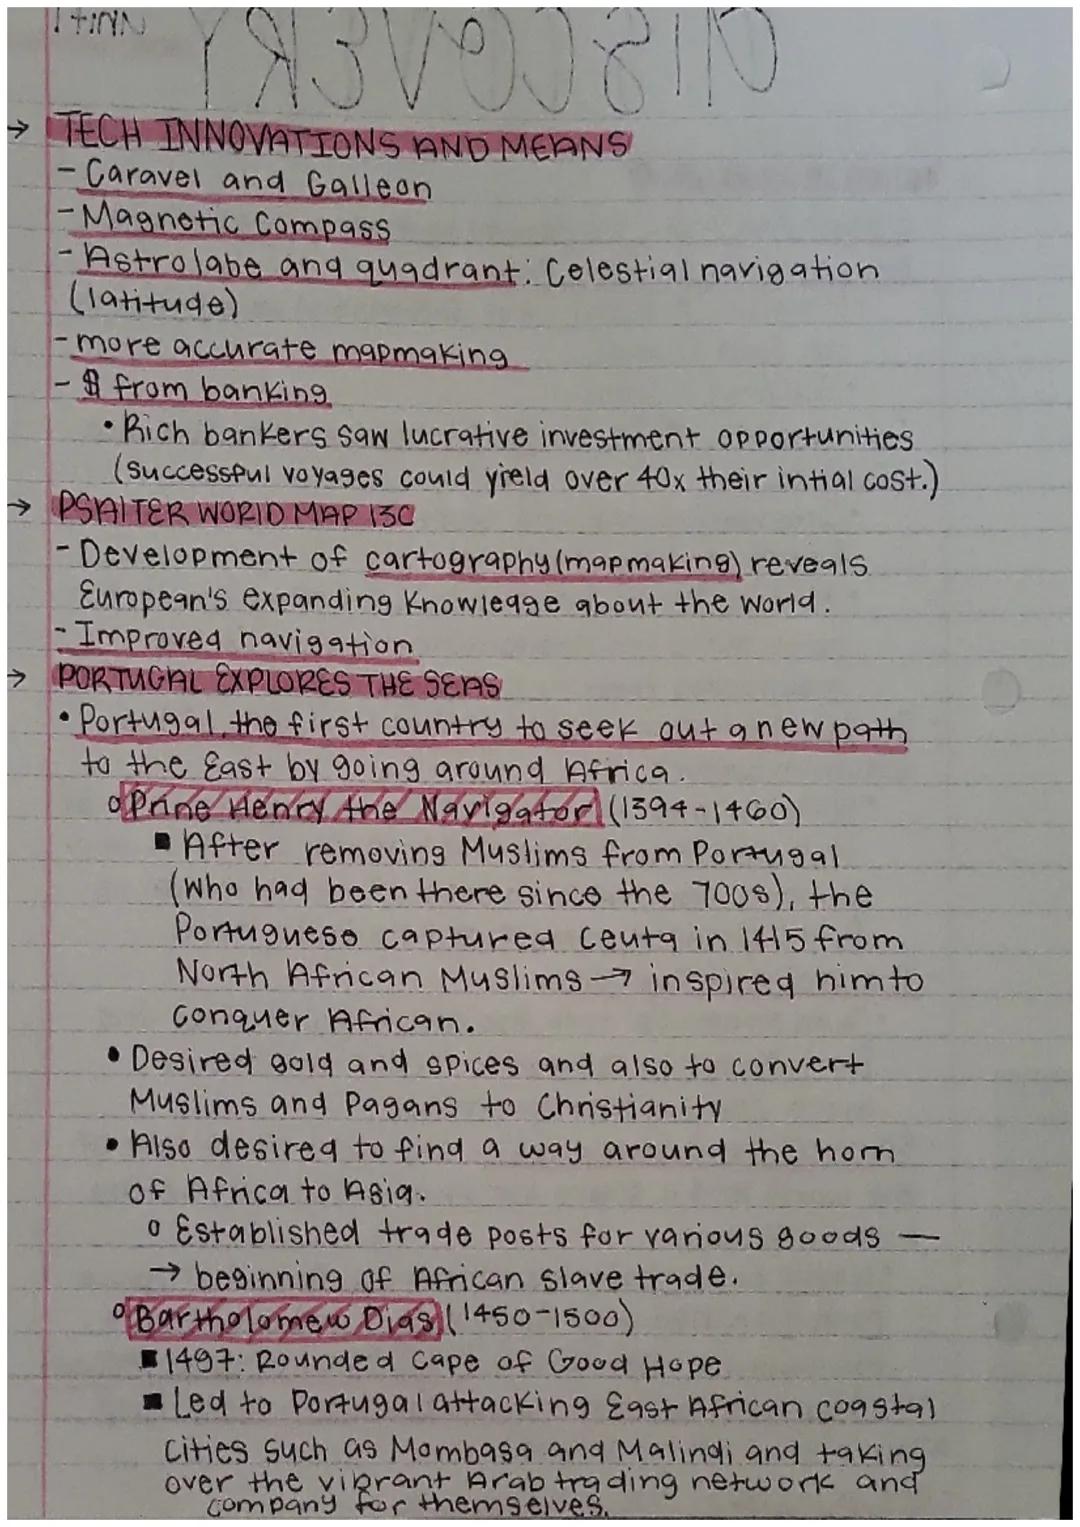 Unit 1
DISCOVERY
→ TECH INNOVATIONS AND MEANS
- Caravel and Galleon
- Magnetic Compass
- Astrolabe and quadrant: Celestial navigation
(latitude)
- more accurate mapmaking
- $ from banking
• Rich bankers saw lucrative investment opportunities
(successful voyages could yield over 40x their intial cost.)
→ PSALTER WORLD MAP 13C
- Development of cartography (mapmaking) reveals
European's expanding knowledge about the world.
- Improved navigation
→ PORTUGAL EXPLORES THE SEAS
• Portugal, the first country to seek out a new path
to the East by going around Africa.
o Prine Henry the Navigator (1394-1460)
▪ After removing Muslims from Portugal
(who had been there since the 700s), the
Portuguese captured Ceuta in 1415 from
North African Muslims → inspired him to
conquer African.
• Desired gold and spices and also to convert
Muslims and Pagans to Christianity
• Also desired to find a way around the horn
of Africa to Asia.
o Established trade posts for various goods —
→ beginning of African slave trade.
o Bartholomew Dias (1450-1500)
▪ 1497: Rounded Cape of Good Hope
▪ Led to Portugal attacking East African coastal
cities such as Mombasa and Malindi and taking
over the vibrant Arab trading network and
company for themselves.